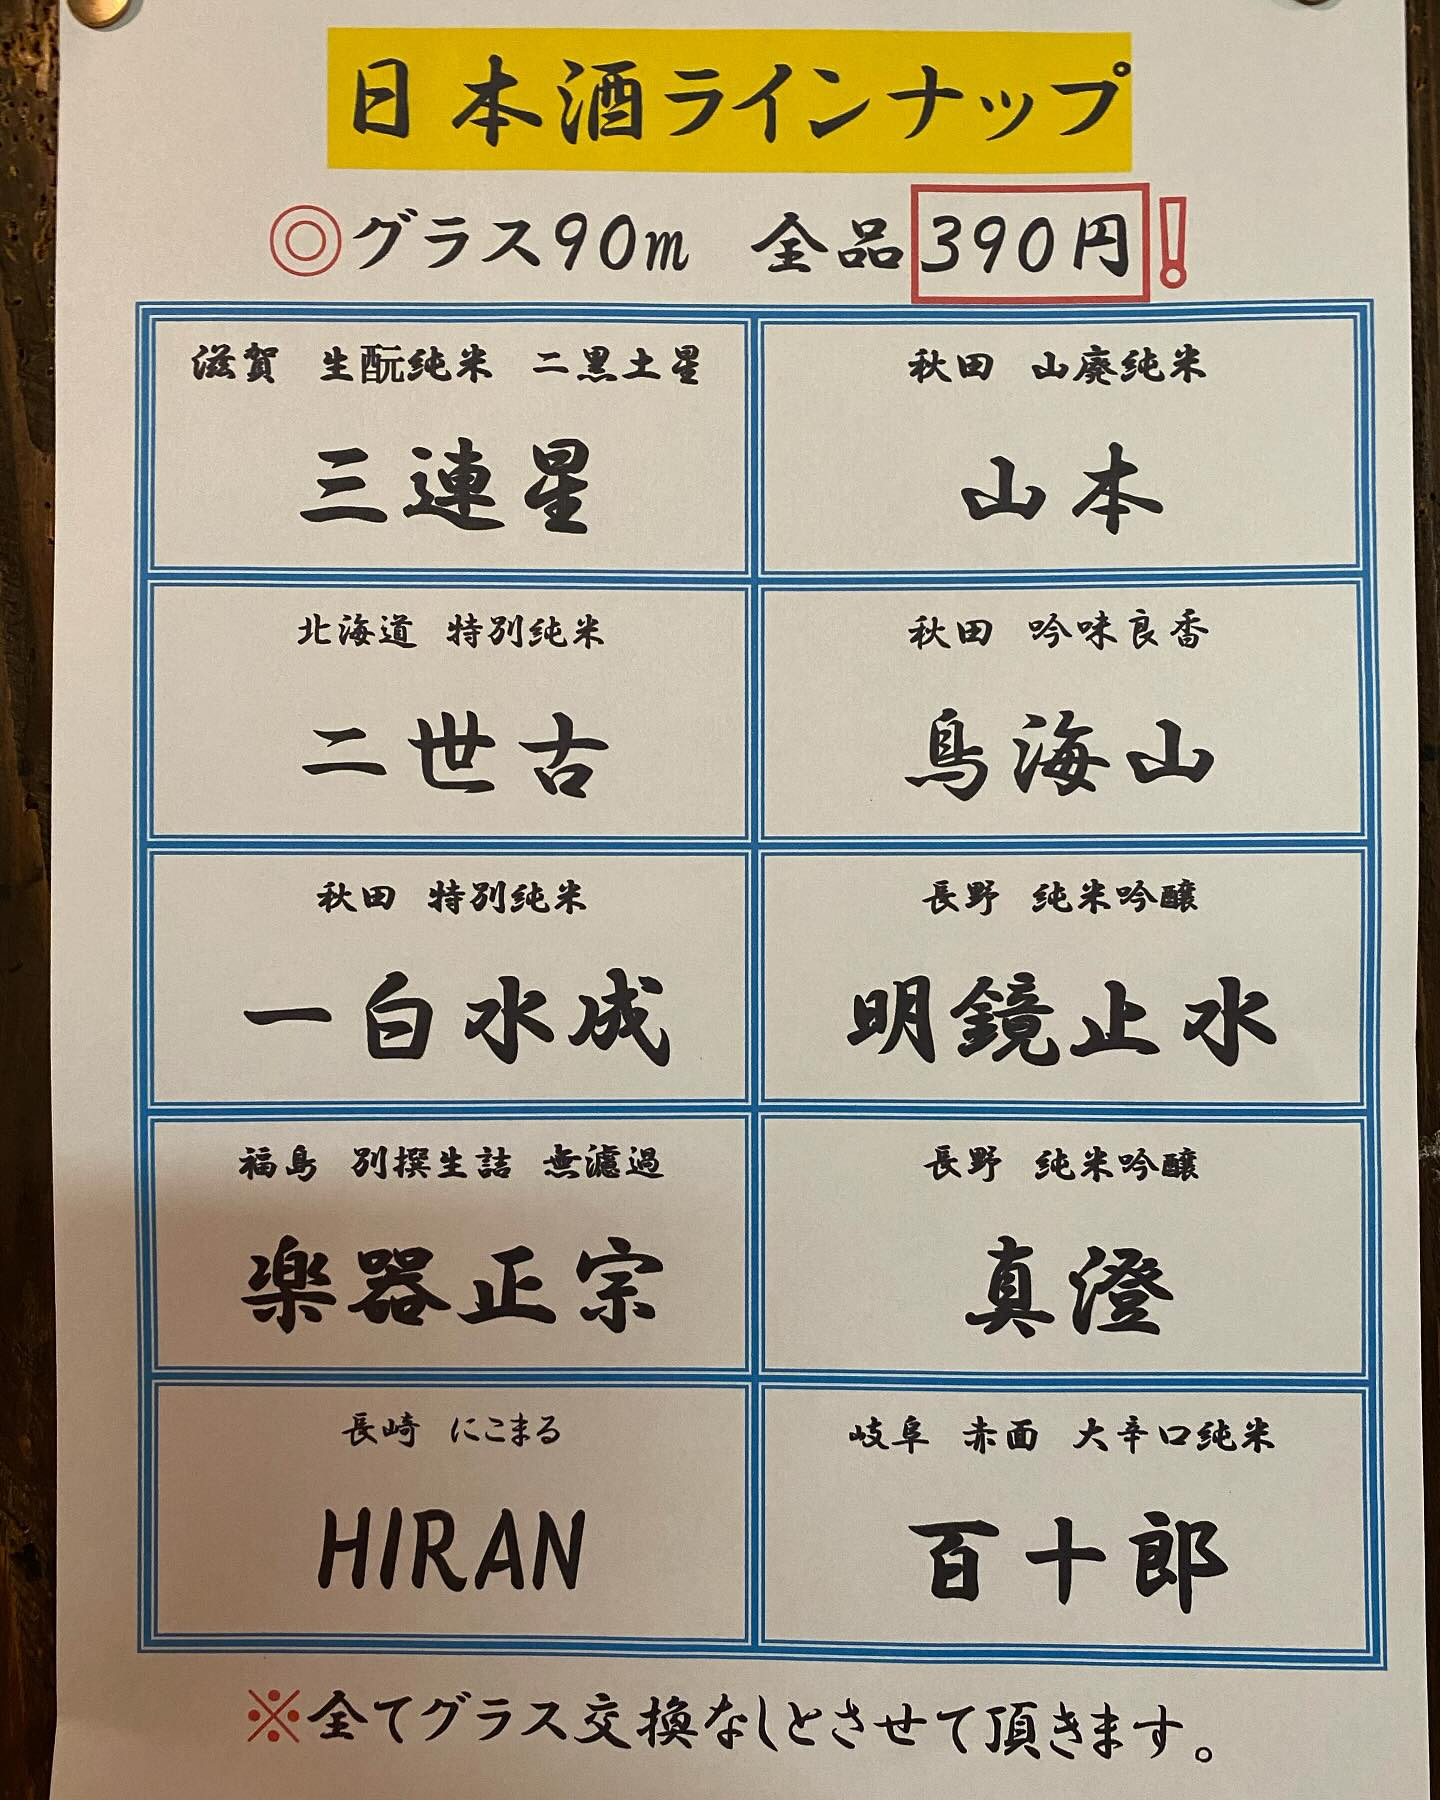 日本酒ラインナップ
◎グラス90m 全品390円!
滋賀 生酛純米 二黒土星
三連星
秋田 山廃純米
山本
北海道 特別純米
二世古
秋田 吟味良香
鳥海山
秋田 特別純米
一白水成
長野 純米吟醸
明鏡止水
福島 別撰生詰 無濾過
楽器正宗
長野 純米吟醸
真澄
長崎 にこまる
HIRAN
岐阜 赤面 大辛口純米
百十郎
※全てグラス交換なしとさせて頂きます。